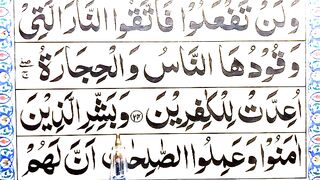 وَلَنْ تَفْعَلُوْا فَاتَّقُوا النَّارَ الَّتِيْ
وَقُوْدُهَا النَّاسُ وَالْحِجَارَةُ ۖۚ
اُعِدَّتْ لِلْكٰفِرِيْنَ ﴿۲۴﴾ وَبَشِّرِ الَّذِيْنَ
اٰمَنُوْا وَعَمِلُوا الصّٰلِحٰتِ اَنَّ لَهُمْ